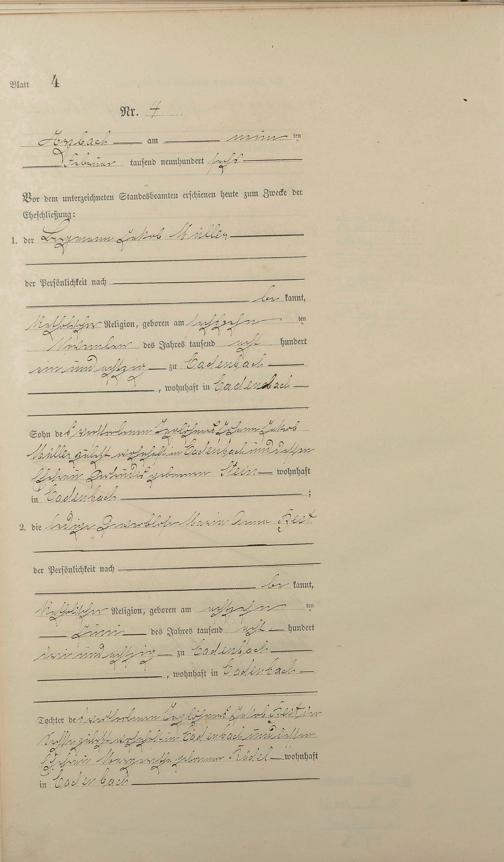 Blatt 4
Nr. 4
Arzbach am neun ten
Februar tausend neunhundert sechs
Vor dem unterzeichneten Standesbeamten erschienen heute zum Zwecke der
Eheschließung:
1. der Bergmann Jakob Müller
der Persönlichkeit nach
be kannt,
katholischer Religion, geboren am sechzehn ten
November des Jahres tausend acht hundert
ein und achtzig zu Cadenbach
, wohnhaft in Cadenbach
Sohn des verstorbenen Taglöhners Johann Jakob
Müller zuletzt wohnhaft in Cadenbach und dessen
Ehefrau geborenen Stein wohnhaft
in Cadenbach ;
2. die ledige Maria Anna
der Persönlichkeit nach
be kannt,
katholischer Religion, geboren am achtzehn ten
Juni des Jahres tausend acht hundert
drei und achtzig zu Cadenbach
, wohnhaft in Cadenbach
Tochter des verstorbenen Taglöhners Jakob
zuletzt wohnhaft in Cadenbach und dessen
Ehefrau Margaretha geborenen wohnhaft
in Cadenbach